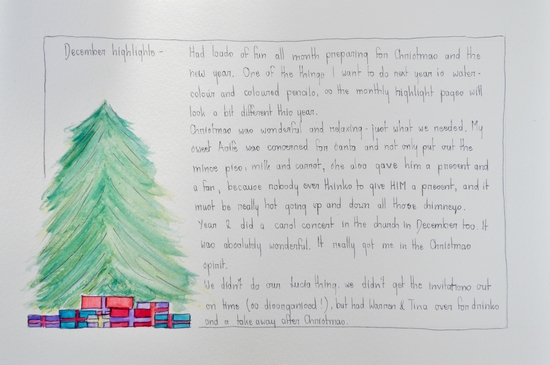 December highlights -
Had loads of fun all month preparing for Christmas and the
new year. One of the things I want to do next year is water-
colour and coloured pencils, so the monthly highlight pages will
look a bit different this year.
Christmas was wonderful and relaxing - just what we needed. My
sweet Aoife was concerned for Santa and not only put out the
mince pies, milk and carrot, she also gave him a present and
a fan, because nobody ever thinks to give HIM a present, and it
must be really hot going up and down all those chimneys.
Year 2 did a carol concert in the church in December too. It
was absolutely wonderful. It really got me in the Christmas
spirit.
We didn't do our Lucia thing. we didn't get the invitations out
on time (so disorganised!), but had Warren & Tina over for drinks
and a take away after Christmas.